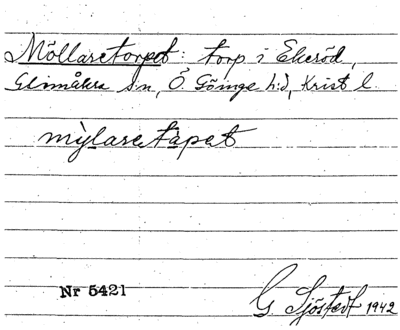 Möllaretorpet: torp i Ekeröd,
Glimåkra s:n, Ö. Göinge h:d, Krist l.
mỳlaretàpet
Nr 5421
G. Sjöstedt 1942